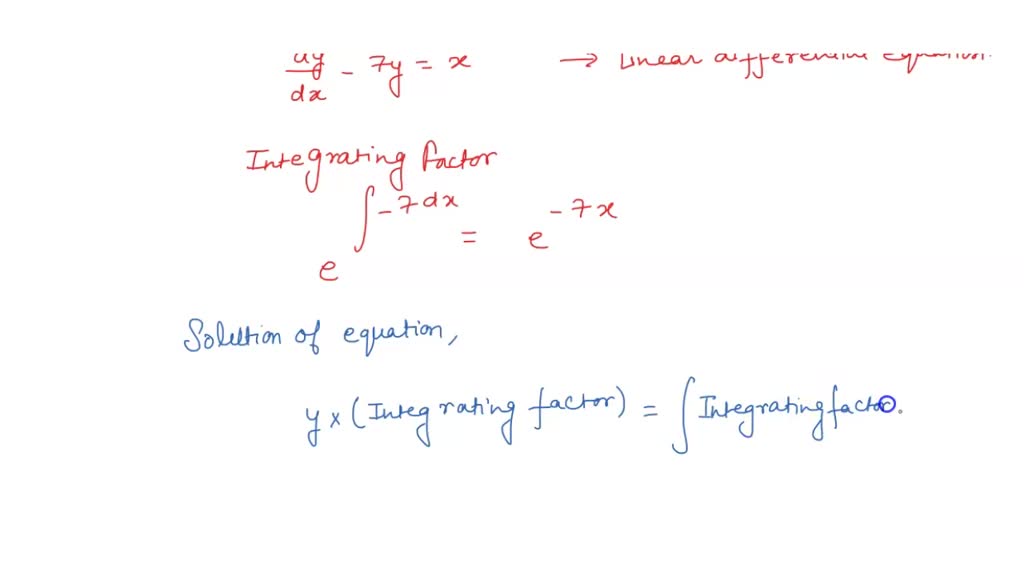 dy/dx - 7y = x → Linear differential equation.
Integrating factor
e^∫-7dx = e^-7x
Solution of equation,
y × (Integrating factor) = ∫ Integrating factor.